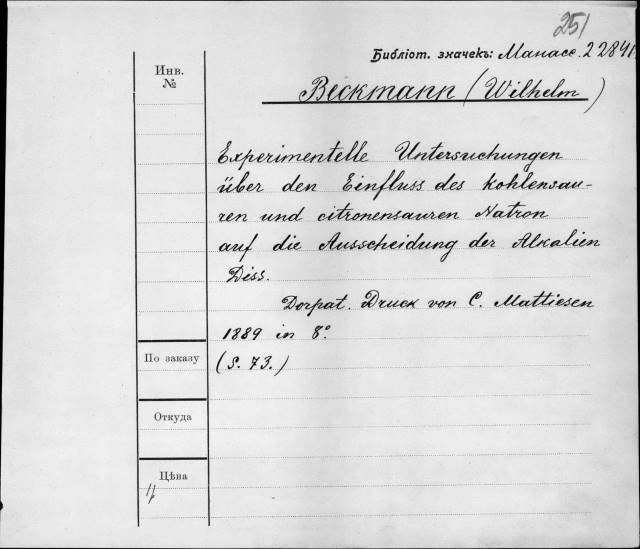 251
Библіот. значекъ: Манасс. 22841.
Инв.
№
Beckmann (Wilhelm)
Experimentelle Untersuchungen
über den Einfluss des kohlensau-
ren und citronensauren Natron
auf die Ausscheidung der Alkalien
Diss.
Dorpat. Druck von C. Mattiesen
1889 in 8°.
(S. 73.)
По заказу
Откуда
Цѣна